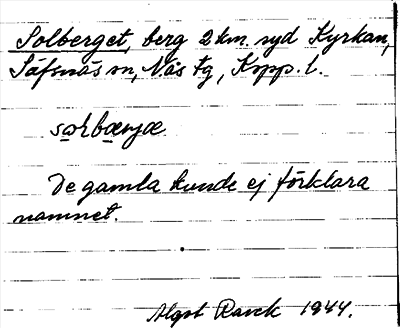 Solberget, berg 2 km. syd Kyrkan,
Säfsnäs sn, Nås tg, Kopp. l.
De gamla kunde ej förklara
namnet.
Algot Rask 1944.